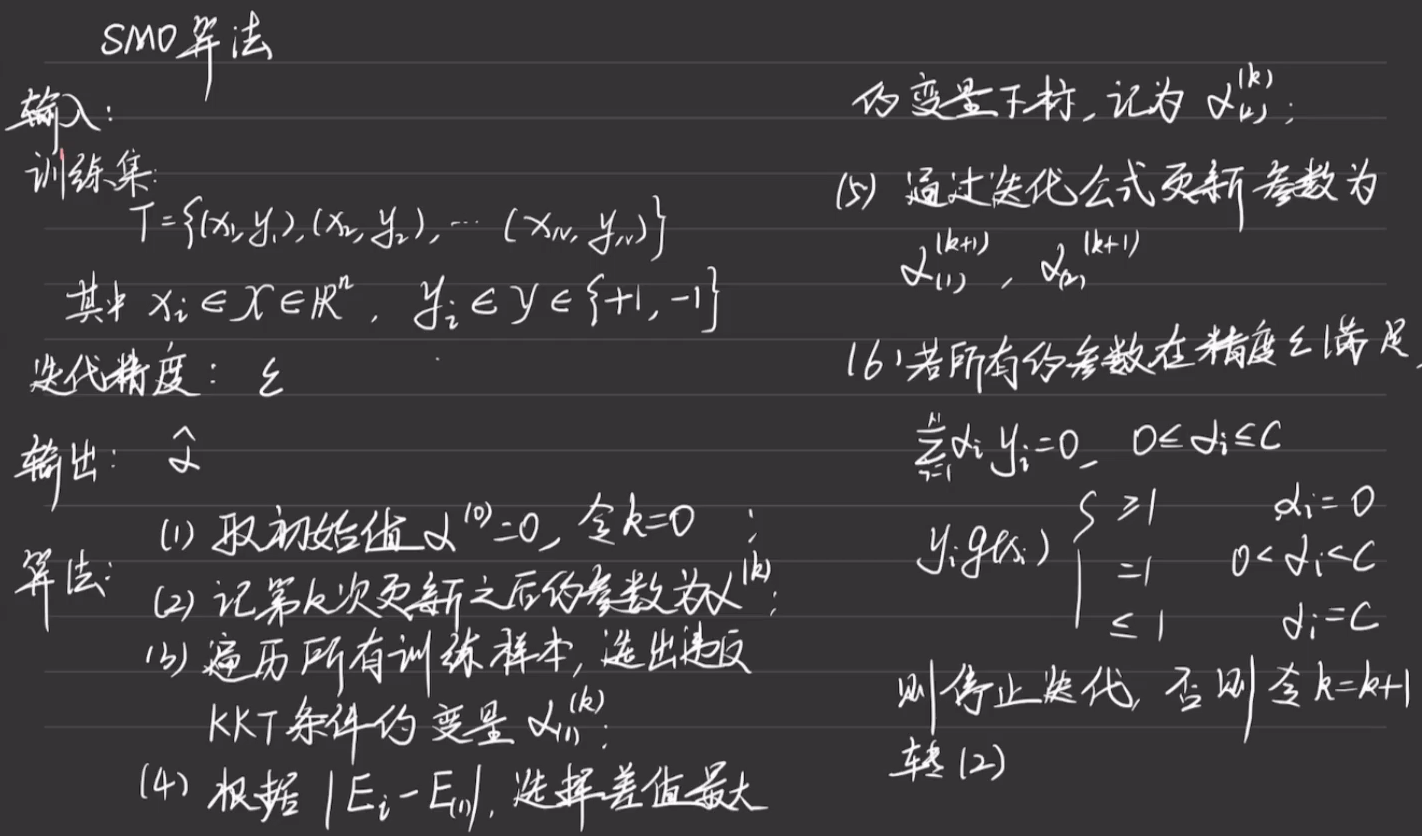 SMO算法
输入:
训练集:
T={(x₁,y₁),(x₂,y₂),…(x_N,y_N)}
其中 x_i∈X∈R^n, y_i∈Y∈{+1,-1}
迭代精度: ε
输出: α̂
算法:
(1) 取初始值 α^(0)=0, 令k=0;
(2) 记第k次更新之后的参数为α^(k);
(3) 遍历所有训练样本, 选出违反
KKT条件的变量 α_(1)^(k);
(4) 根据 |E_i-E_(1)|, 选择差值最大
的变量下标, 记为 α_(2)^(k);
(5) 通过迭代公式更新参数为
α_(1)^(k+1), α_(2)^(k+1)
(6) 若所有的参数在精度ε满足
∑_{i=1}^N α_i y_i=0, 0≤α_i≤C
y_i g(x_i) { ≥1 α_i=0
=1 0<α_i<C
≤1 α_i=C
则停止迭代, 否则令k=k+1
转(2)